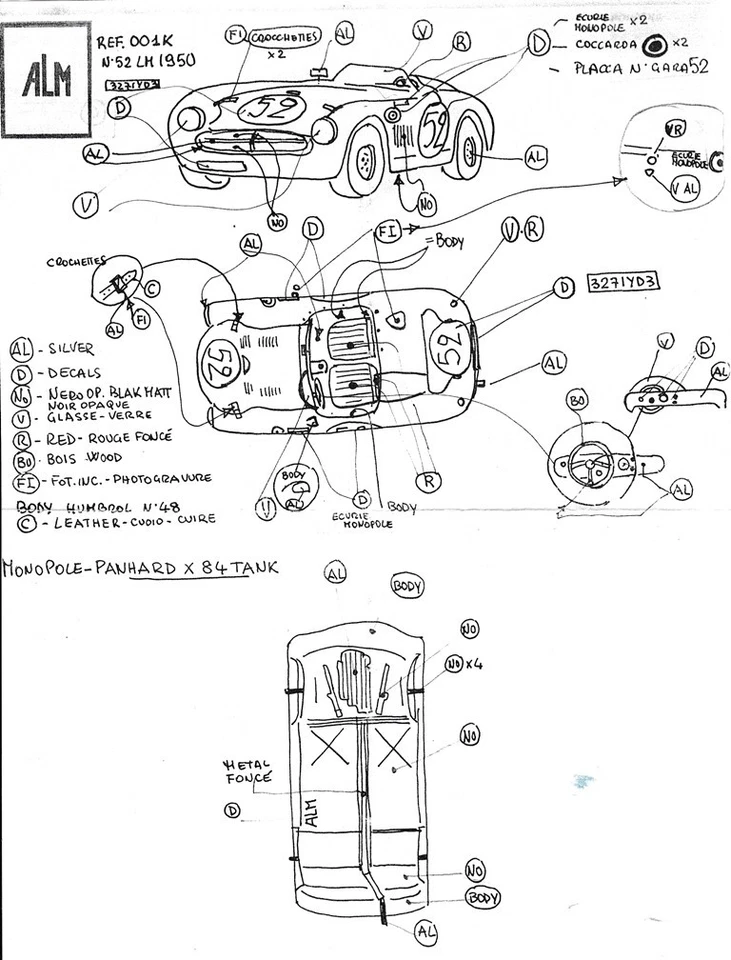 ALM
REF. 001K
N°52 LM 1950
3271YD3
FI CROCCHETTES
x2
AL
V
R
D
ECURIE
MONOPOLE x2
COCCARDA x2
PLACCA N°GARA 52
D
52
52
AL
AL
V
NO
NO
VR
ECURIE
MONOPOLE
V AL
CROCHETTES
C
AL
FI
AL
D
FI
= BODY
V·R
D
3271YD3
52
52
AL
V
D
AL
BO
AL
AL - SILVER
D - DECALS
NO - NERO OP. BLAK MATT
NOIR OPAQUE
V - GLASSE-VERRE
R - RED-ROUGE FONCÉ
BO - BOIS WOOD
FI - FOT.INC.-PHOTOGRAVURE
BODY HUMBROL N°48
C - LEATHER-CUOIO-CUIRE
BODY
AL
V
D
ECURIE
MONOPOLE
BODY
R
MONOPOLE-PANHARD X 84 TANK
AL
BODY
NO
NO x4
NO
METAL
FONCÉ
D
ALM
NO
BODY
AL